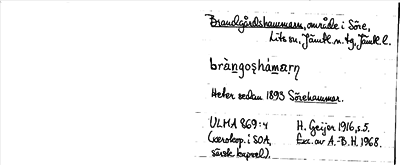 Brandgårdshammarn, område i Söre,
Lits sn. Jämtl. n. tg. Jämtl. l.
Heter sedan 1893 Sörehammar.
ULMA 869:4 H. Geijer 1916, s. 5.
(xerokop. i SOA, Exc. av A.-B. H. 1968.
särsk. kapsel).